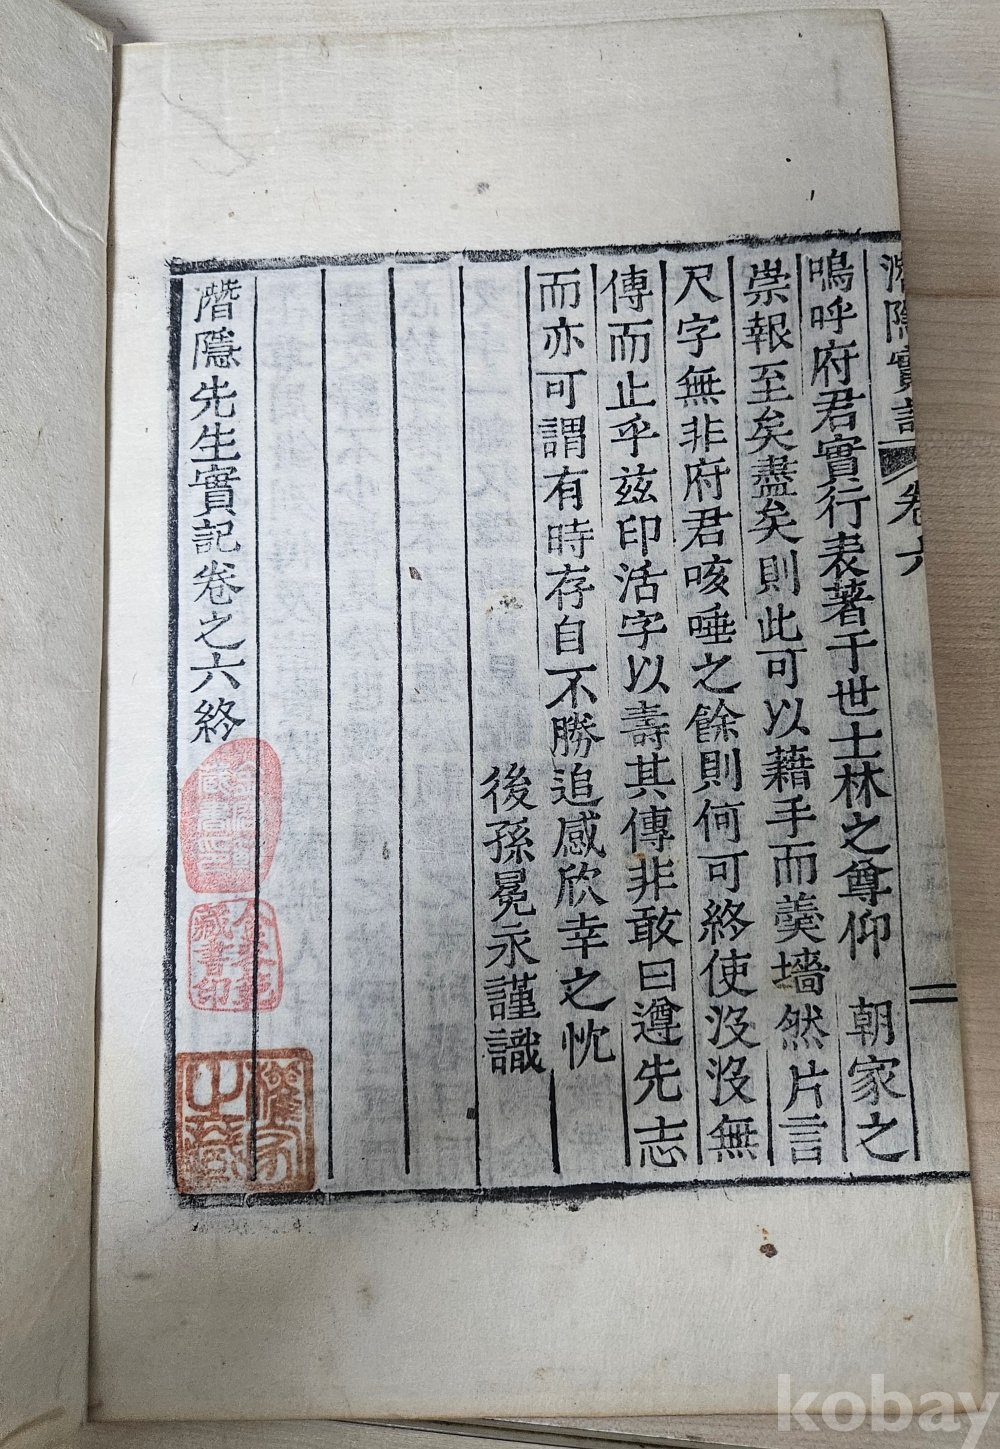 潛隱實記
卷六
二
嗚呼府君實行表著于世士林之尊仰 朝家之
崇報至矣盡矣則此可以藉手而羹墻然片言
尺字無非府君咳唾之餘則何可終使沒沒無
傳而止乎玆印活字以壽其傳非敢曰遵先志
而亦可謂有時存自不勝追感欣幸之忱
後孫冕永謹識
潛隱先生實記卷之六終
藏書印
藏書印
kobay